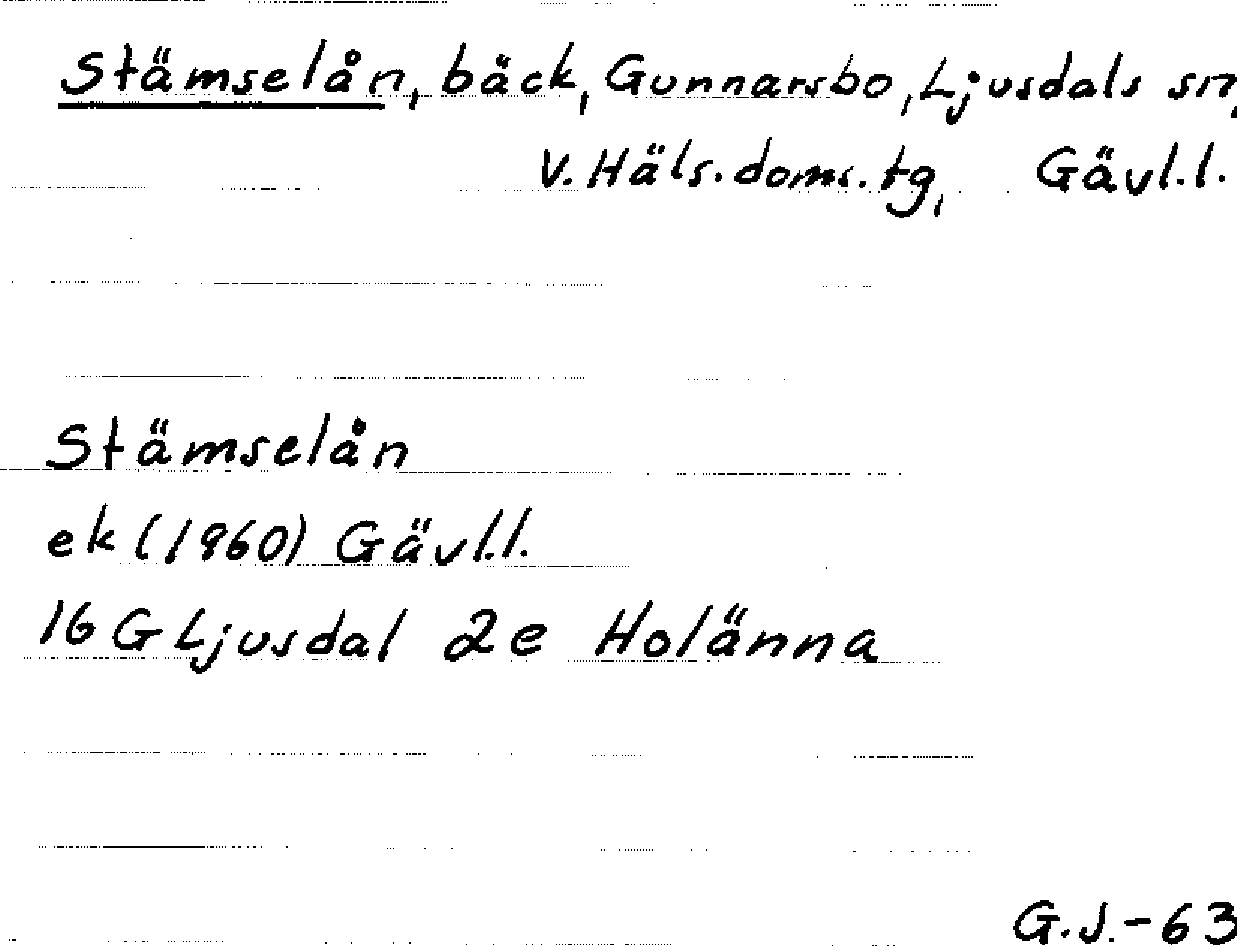 Stämselån, bäck, Gunnarsbo, Ljusdals sn,
V. Häls. doms. tg, Gävl.l.
Stämselån
ek (1960) Gävl.l.
16 G Ljusdal 2e Holänna
G.J.-63